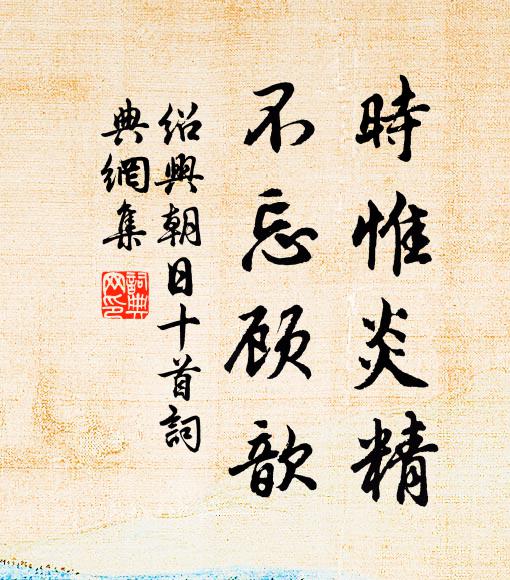 時惟炎精
不忘顾歆
绍興朝日十首詞
典網集
詞典
网印